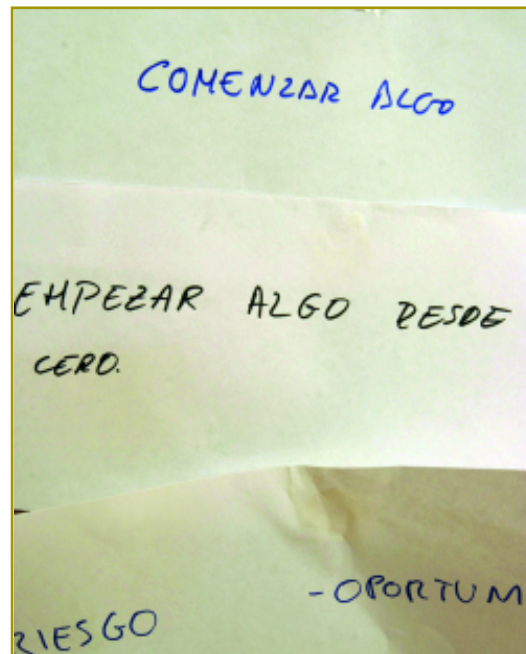 COMENZAR ALGO
EMPEZAR ALGO DESDE
CERO.
- OPORTUN
RIESGO